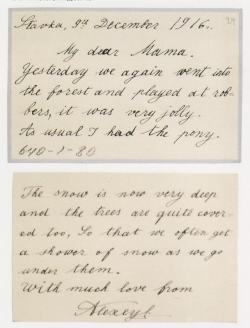 Stavka, 9th December 1916.
My dear Mama.
Yesterday we again went into
the forest and played at rob-
bers, it was very jolly.
As usual I had the pony.
640-1-80
The snow is now very deep
and the trees are quite cover-
ed too, So that we often get
a shower of snow as we go
under them.
With much love from
Alexey